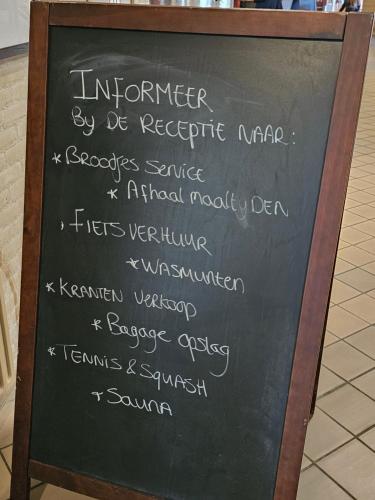 INFORMEER
By DE RECEPTIE NAAR:
* Broodjes service
* Afhaal maaltyDEN
, FIETSVERHUUR
* wasmunten
* KRANTEN verkoop
* Bagage opslag
* TENNIS & SQUASH
* Sauna